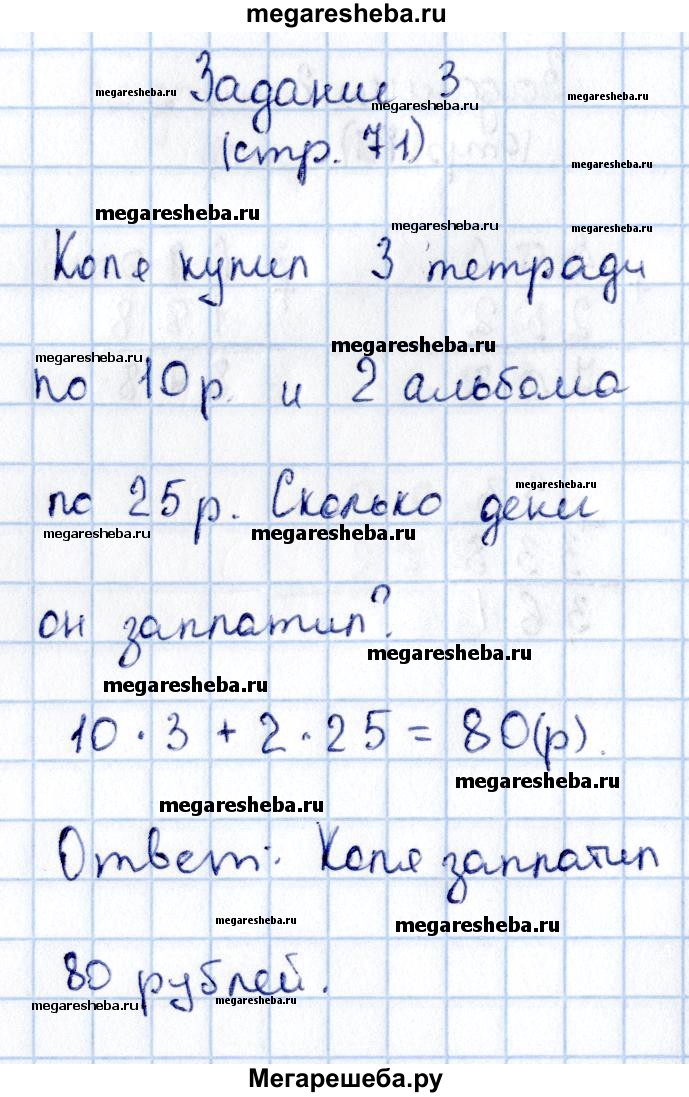 megaresheba.ru
Задание 3
megaresheba.ru
megaresheba.ru
megaresheba.ru
(стр. 71)
megaresheba.ru
megaresheba.ru
megaresheba.ru
megaresheba.ru
Коля купил 3 тетради
megaresheba.ru
megaresheba.ru
по 10 р. и 2 альбома
megaresheba.ru
по 25 р. Сколько
megaresheba.ru
megaresheba.ru
megaresheba.ru
он заплатил?
megaresheba.ru
megaresheba.ru
10 · 3 + 2 · 25 = 80(р).
megaresheba.ru
megaresheba.ru
Ответ: Коля заплатил
megaresheba.ru
megaresheba.ru
80 рублей.
megaresheba.ru
megaresheba.ru
Мегарешеба.ру